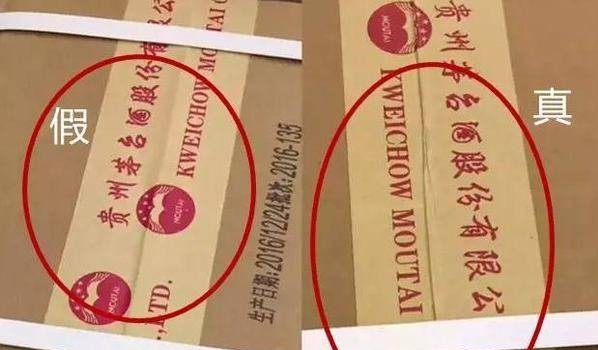 假
贵州茅台酒股份有限
KWEICHOW MOUTAI C
MOUTAI
MOUTAI
.,LTD.
生产日期:2016/12/24批次:2016-135
真
MOUTAI
贵州茅台酒股份有限公
KWEICHOW MOUTAI